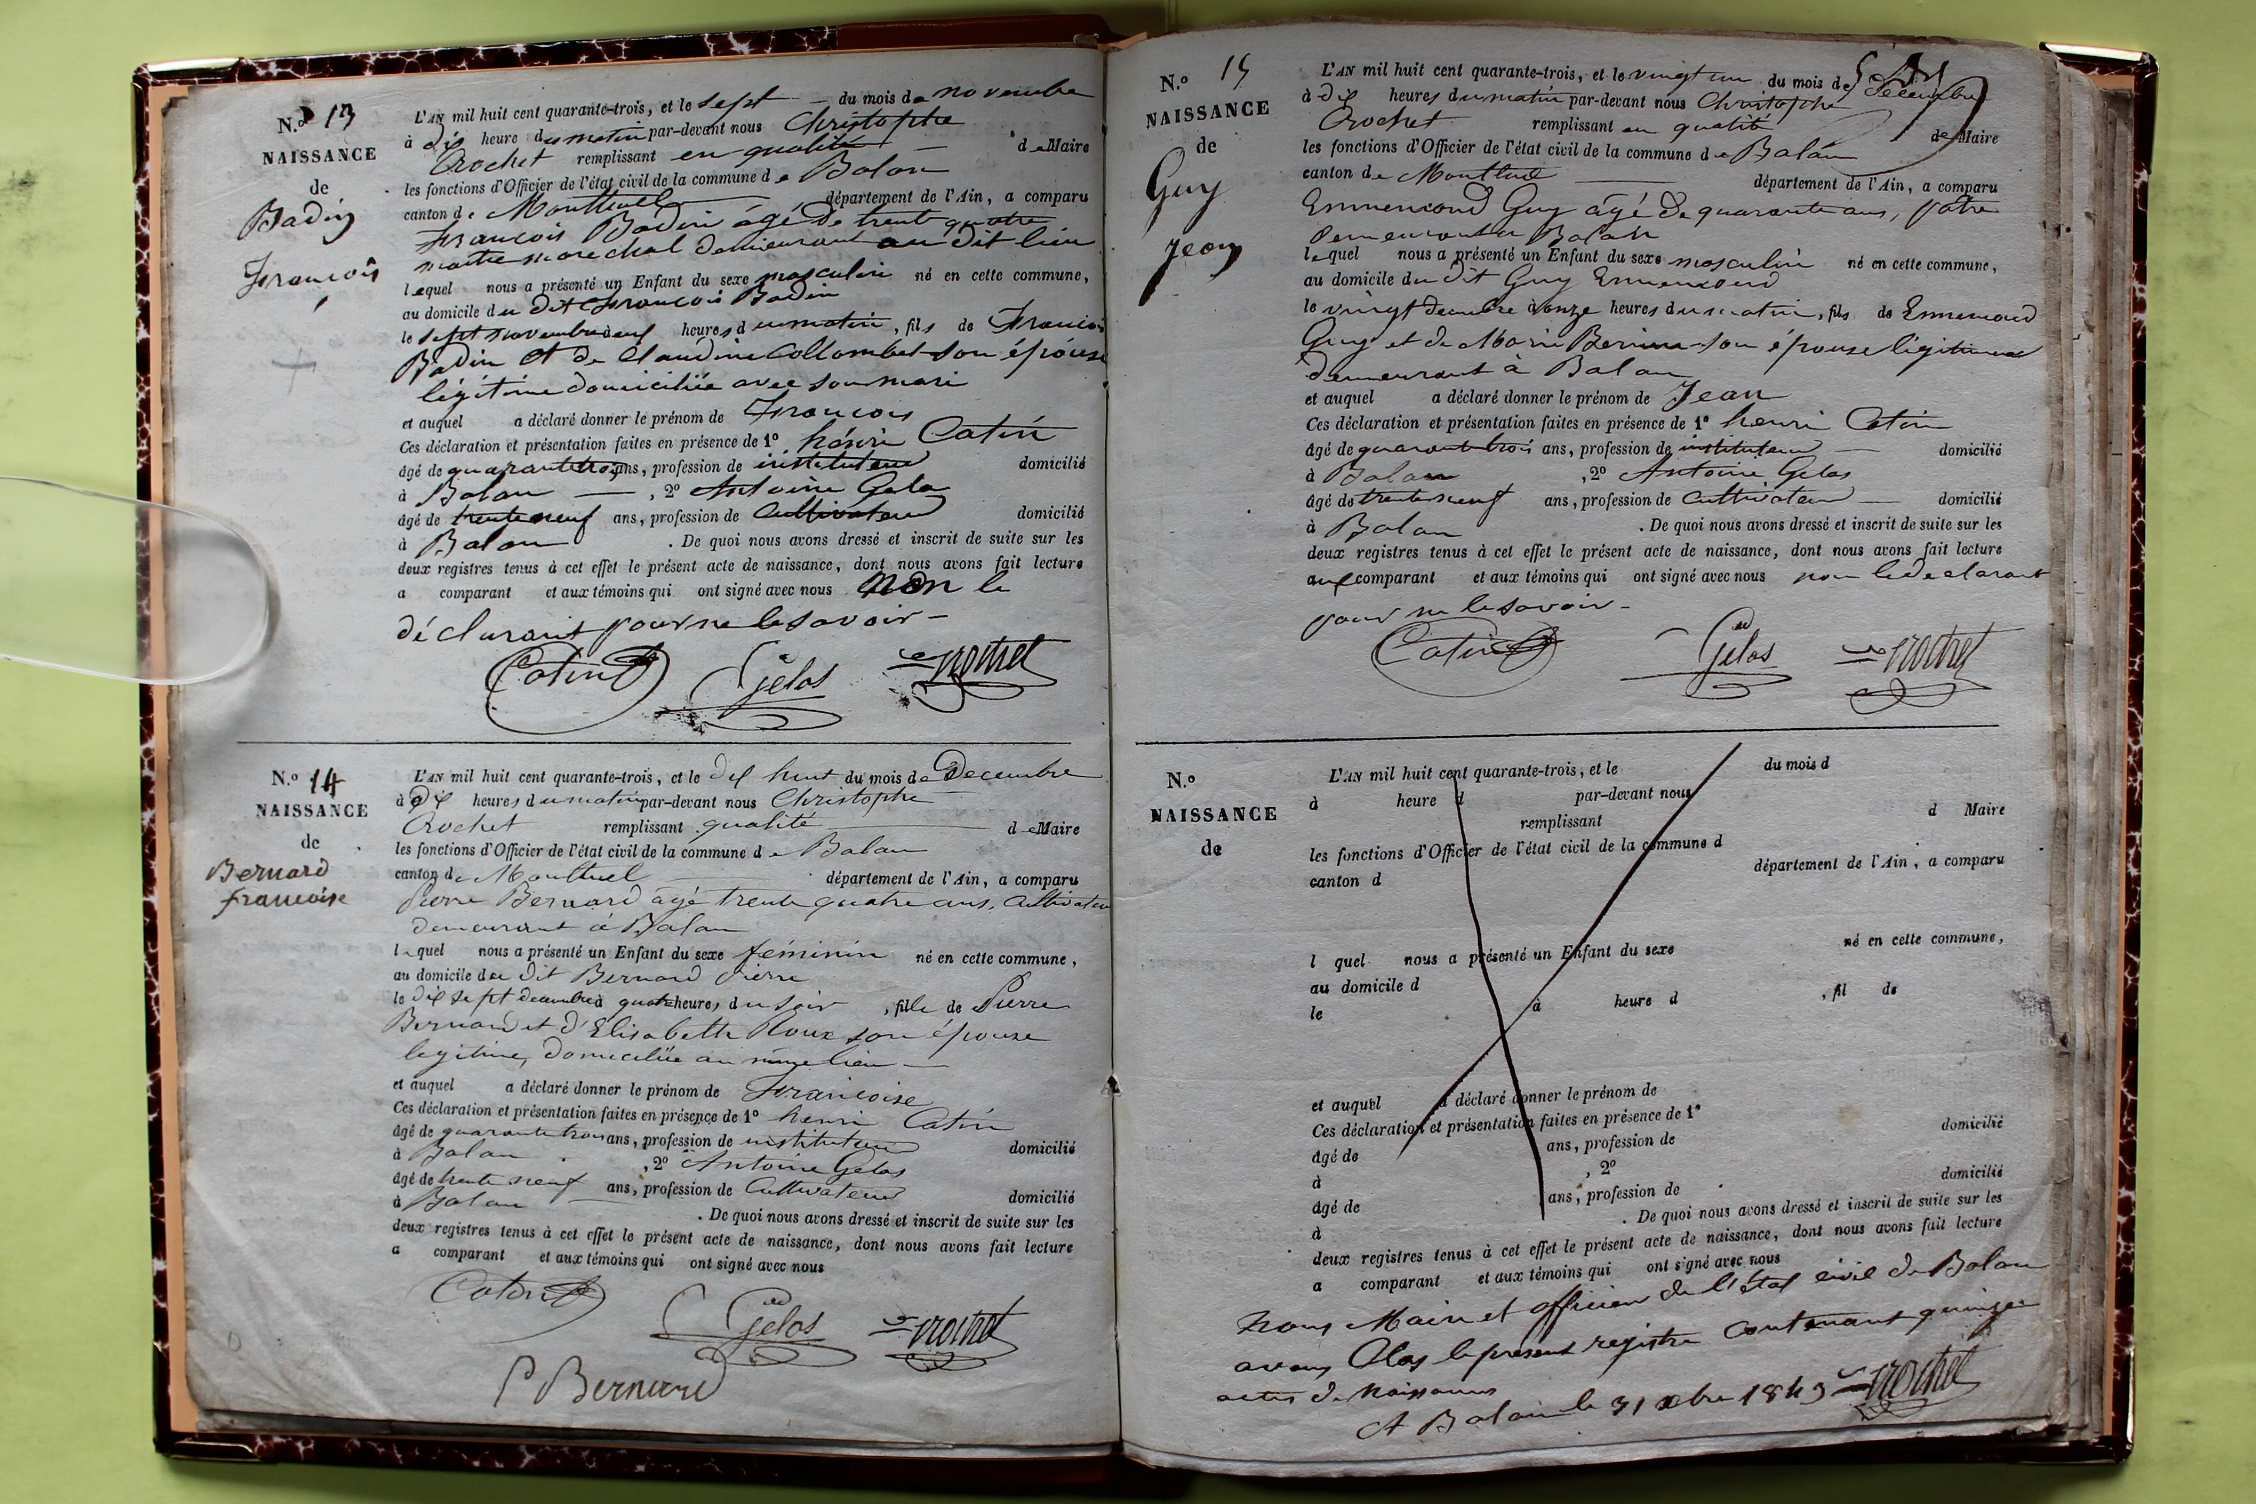 N.o 13
NAISSANCE
de
Badin
François
L'AN mil huit cent quarante-trois, et le sept du mois de novembre
à dix heure du matin par-devant nous Christophe
Crochet remplissant en qualité de Maire
les fonctions d'Officier de l'état civil de la commune de Balan
canton de Montluel département de l'Ain, a comparu
François Badin âgé de trent quatre
maitre marechal demeurant au dit lieu
lequel nous a présenté un Enfant du sexe masculin né en cette commune,
au domicile du dit François Badin
le sept novembre à neuf heures du matin, fils de François
Badin et de Claudine Collombet son épouse
légitime domiciliée avec son mari
et auquel a déclaré donner le prénom de François
Ces déclaration et présentation faites en présence de 1o henri Catin
âgé de quarante trois ans, profession de instituteur domicilié
à Balan, 2o Antoine Gela
âgé de trente neuf ans, profession de Cultivateur domicilié
à Balan. De quoi nous avons dressé et inscrit de suite sur les
deux registres tenus à cet effet le présent acte de naissance, dont nous avons fait lecture
a comparant et aux témoins qui ont signé avec nous non le
déclarant pour ne le savoir
Catin Gelas Crochet
N.o 14
NAISSANCE
de
Bernard
françoise
L'AN mil huit cent quarante-trois, et le dix huit du mois de Decembre
à dix heures du matin par-devant nous Christophe
Crochet remplissant qualité de Maire
les fonctions d'Officier de l'état civil de la commune de Balan
canton de Montluel département de l'Ain, a comparu
Pierre Bernard âgé trente quatre ans, Cultivateur
demeurant à Balan
lequel nous a présenté un Enfant du sexe féminin né en cette commune,
au domicile du dit Bernard Pierre
le dix sept decembre à quatre heures du soir, fille de Pierre
Bernard et d'Elisabeth Roux son épouse
legitime, domiciliée au même lieu
et auquel a déclaré donner le prénom de Françoise
Ces déclaration et présentation faites en présence de 1o henri Catin
âgé de quarante trois ans, profession de instituteur domicilié
à Balan, 2o Antoine Gelas
âgé de trente neuf ans, profession de Cultivateur domicilié
à Balan. De quoi nous avons dressé et inscrit de suite sur les
deux registres tenus à cet effet le présent acte de naissance, dont nous avons fait lecture
a comparant et aux témoins qui ont signé avec nous
Catin Gelas Crochet
P Bernard
N.o 15
NAISSANCE
de
Guy
Jean
L'AN mil huit cent quarante-trois, et le vingt un du mois de Decembre
à dix heures du matin par-devant nous Christophe
Crochet remplissant en qualité de Maire
les fonctions d'Officier de l'état civil de la commune de Balan
canton de Montluel département de l'Ain, a comparu
Ennemond Guy âgé de quarante ans, patre
demeurant à Balan
lequel nous a présenté un Enfant du sexe masculin né en cette commune,
au domicile du dit Guy Ennemond
le vingt decembre à onze heures du matin, fils de Ennemond
Guy et de Marie son épouse légitime
demeurant à Balan
et auquel a déclaré donner le prénom de Jean
Ces déclaration et présentation faites en présence de 1o henri Catin
âgé de quarante trois ans, profession de instituteur domicilié
à Balan, 2o Antoine Gelas
âgé de trente neuf ans, profession de Cultivateur domicilié
à Balan. De quoi nous avons dressé et inscrit de suite sur les
deux registres tenus à cet effet le présent acte de naissance, dont nous avons fait lecture
aux comparant et aux témoins qui ont signé avec nous non le declarant
pour ne le savoir
Catin Gelas Crochet
N.o
NAISSANCE
de
L'AN mil huit cent quarante-trois, et le du mois d
à heure d par-devant nous
remplissant d Maire
les fonctions d'Officier de l'état civil de la commune d
canton d département de l'Ain, a comparu
l quel nous a présenté un Enfant du sexe né en cette commune,
au domicile d
le à heure d, fil de
et auquel a déclaré donner le prénom de
Ces déclaration et présentation faites en présence de 1o
âgé de ans, profession de domicilié
à, 2o
âgé de ans, profession de domicilié
à. De quoi nous avons dressé et inscrit de suite sur les
deux registres tenus à cet effet le présent acte de naissance, dont nous avons fait lecture
a comparant et aux témoins qui ont signé avec nous
Nous Maire et officier de l'état civil de Balan
avons Clos le present registre contenant quinze
actes de Naissances
A Balan le 31 xbre 1843 Crochet